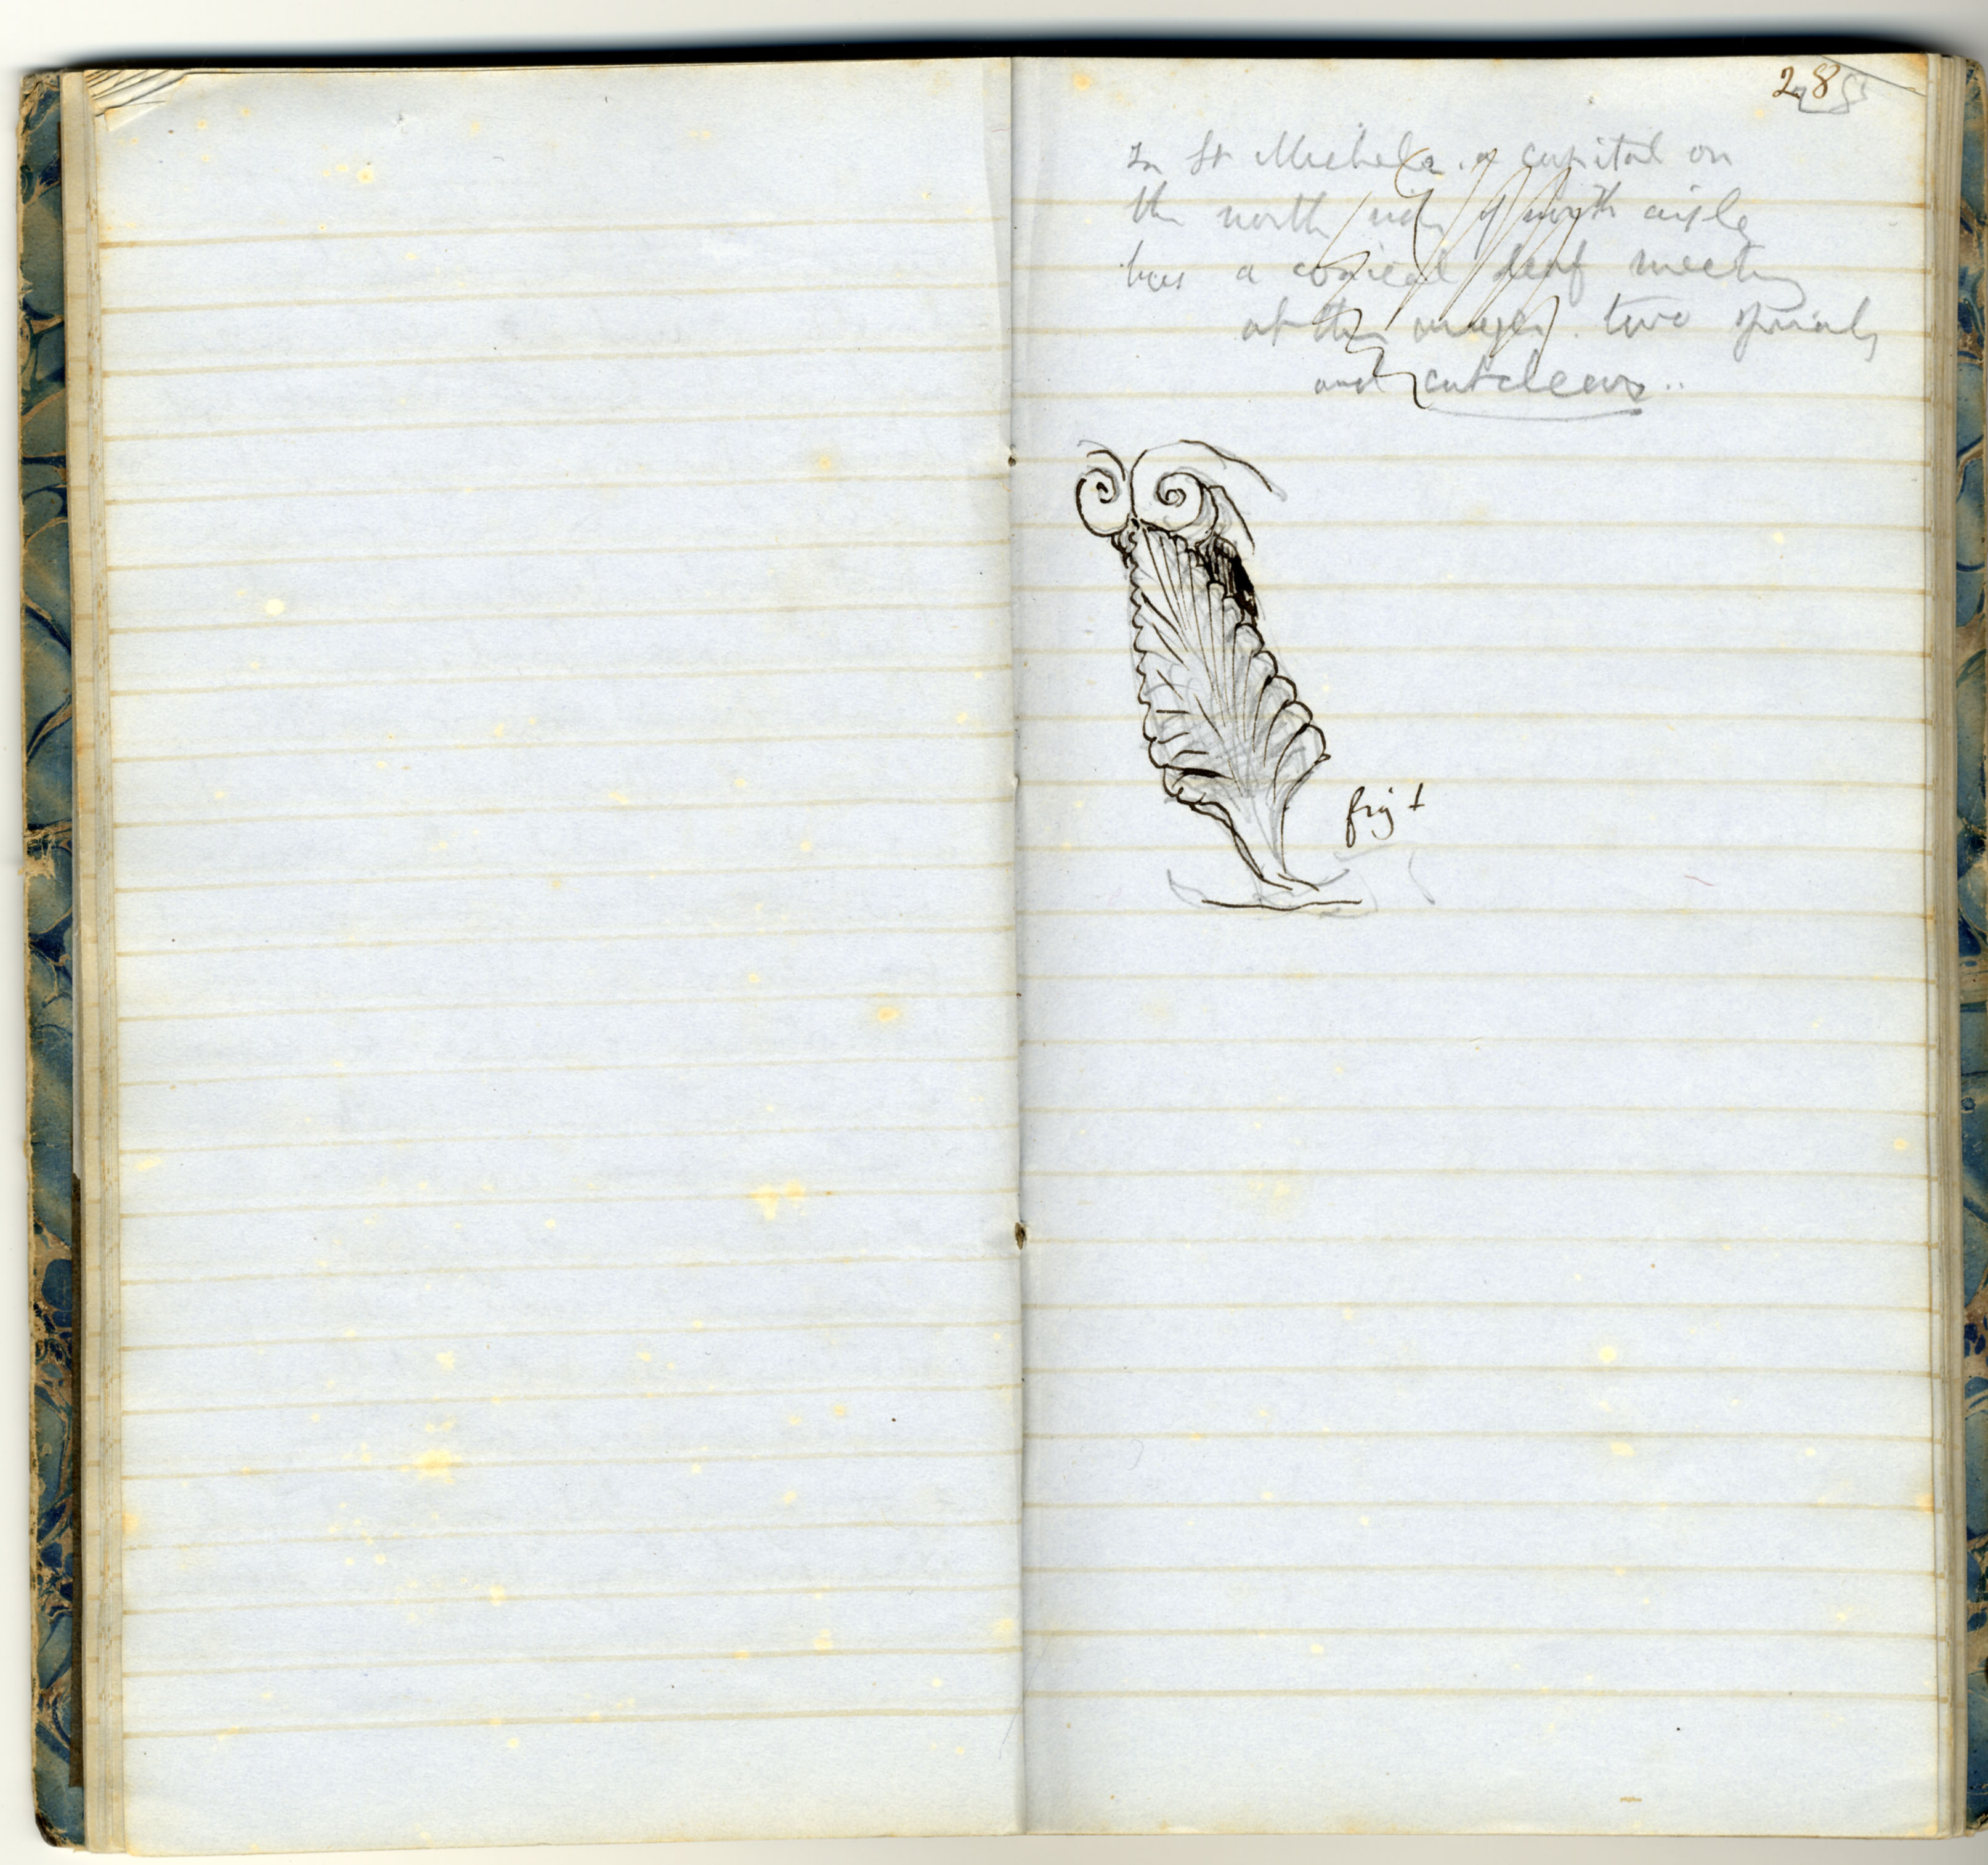 28
In St Michele. a capital on
the north side of north aisle
has a conical leaf meeting
at the angle. two spirals
and cut clear..
fig 1